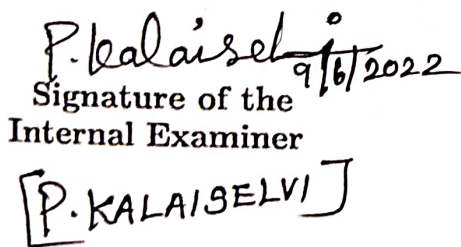 P. Kalaiselvi
9/6/2022
Signature of the
Internal Examiner
[P. KALAISELVI]